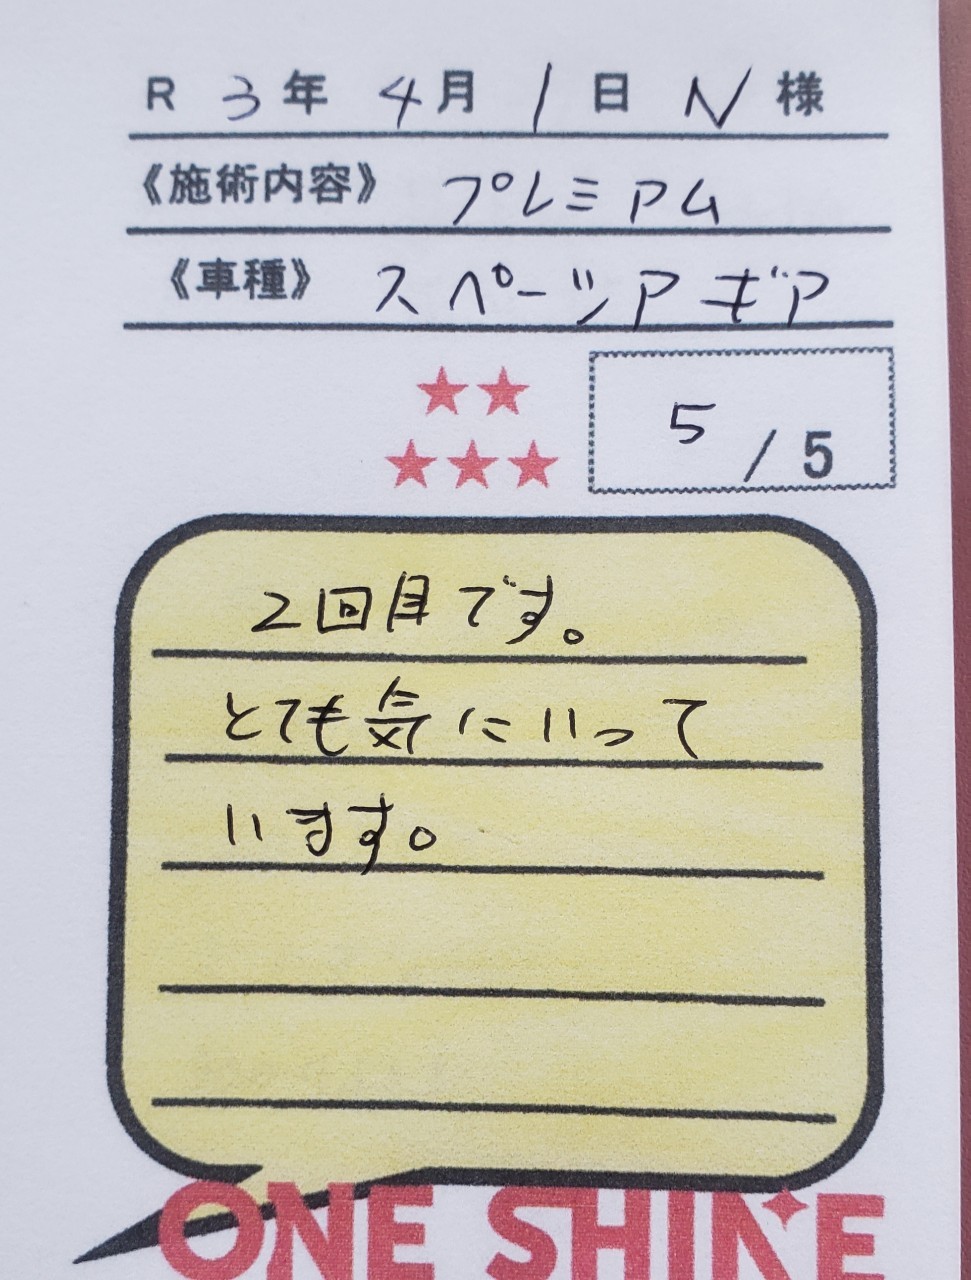 R 3年 4月 1日 N様
《施術内容》 プレミアム
《車種》 スペーツアギア
5/5
2回目です。
とても気にいって
います。
ONE SHINE